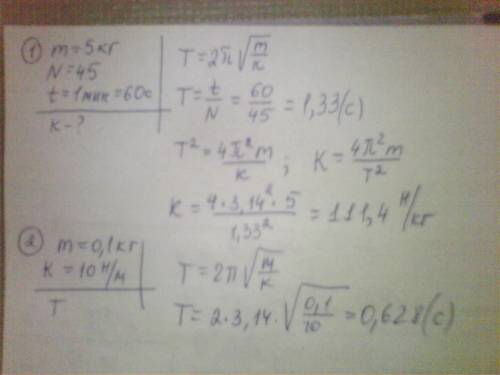 ① m = 5кг
N = 45
t = 1мин = 60с
к - ?
T = 2π√(m/к)
T = t/N = 60/45 = 1,33(с)
T² = 4π²m/к ; К = 4π²m/T²
К = 4*3,14²*5/1,33² = 111,4 Н/кг
② m = 0,1кг
К = 10 Н/м
T
T = 2π√(m/к)
T = 2*3,14·√(0,1/10) = 0,628(с)